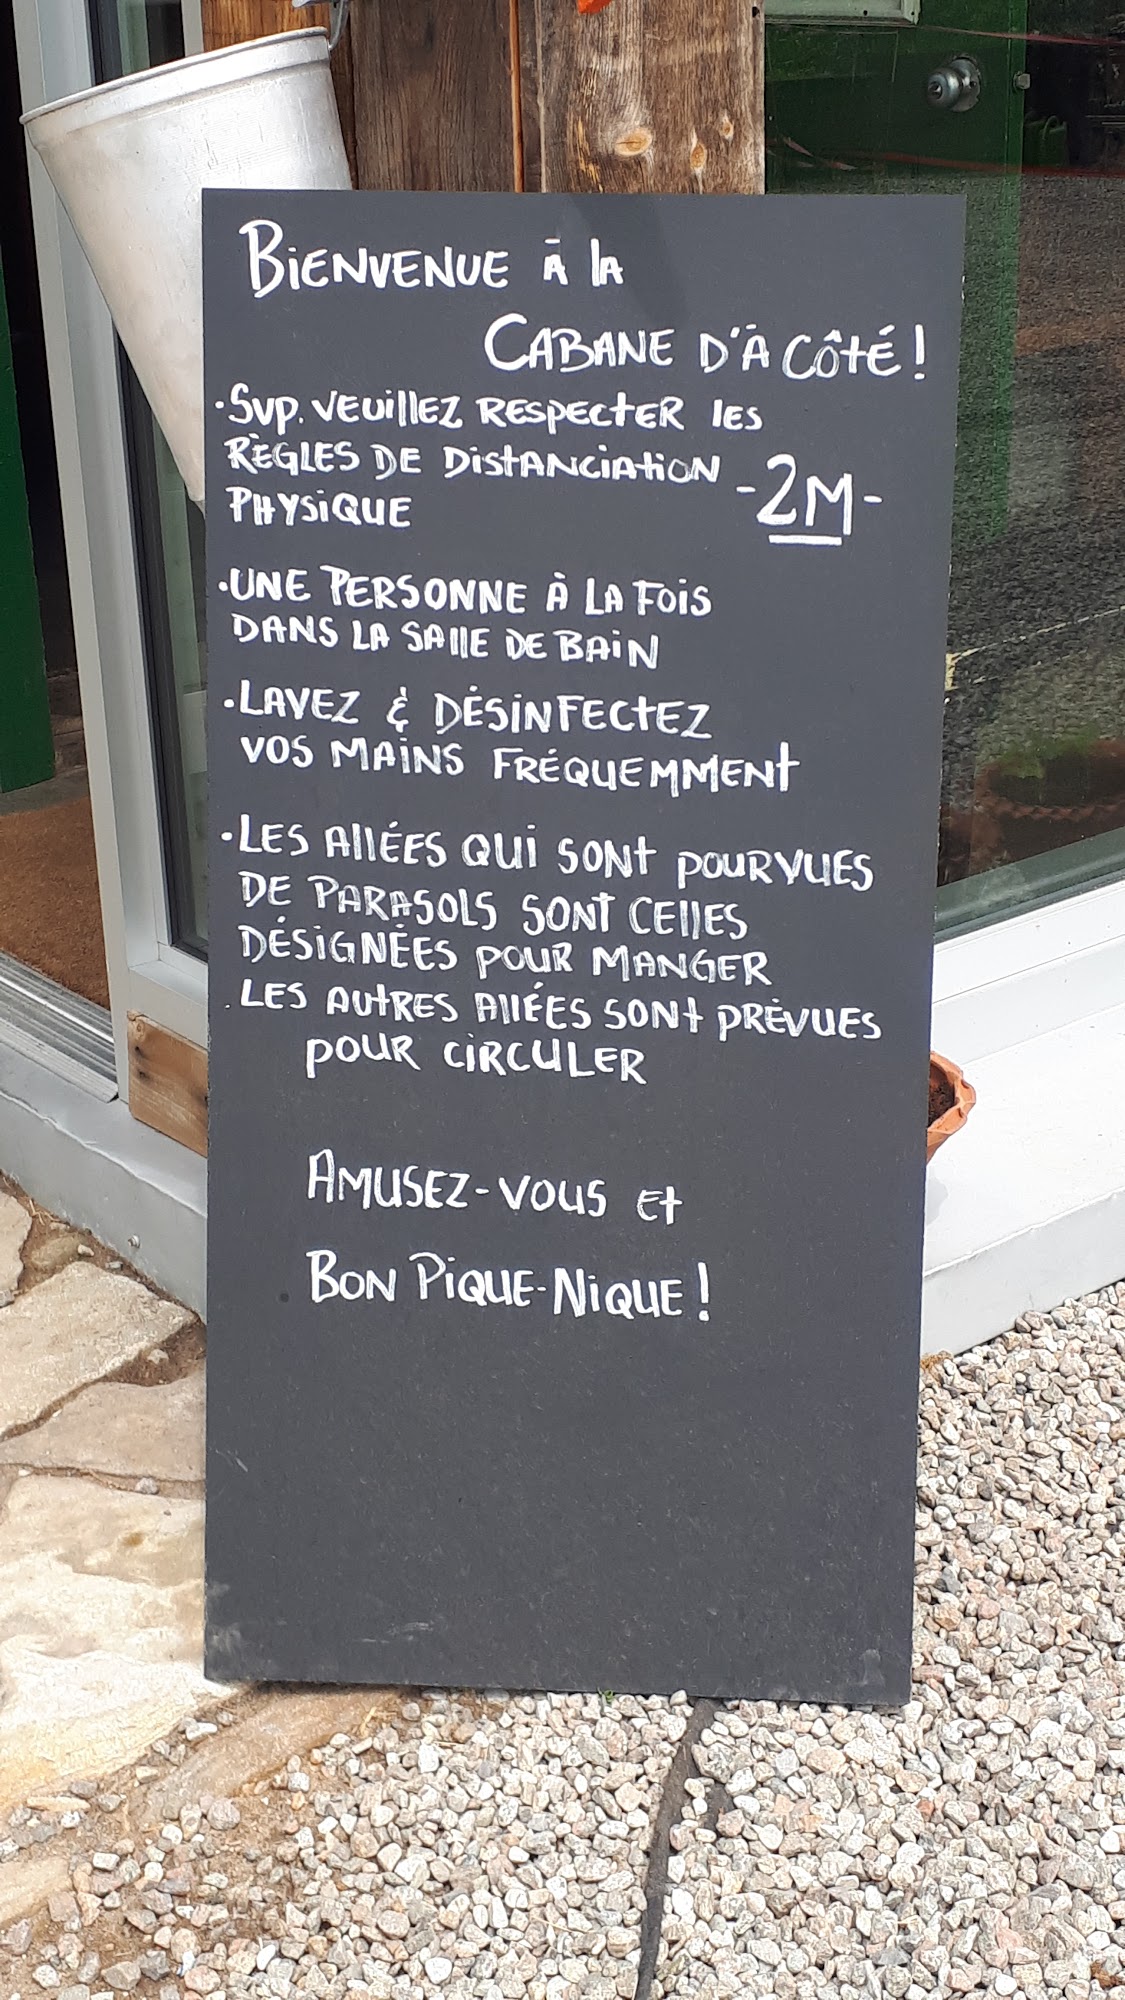 BiENVENUE À lA
CABANE D'À CÔtÉ!
·SVP. VEUillEZ RESPECtER lES
RÈGLES DE DistANCiAtiON
PHYSiQUE
-2M-
·UNE PERSONNE À LA FOiS
DANS LA SAllE DE BAiN
·LAVEZ & DÉSiNFECtEZ
VOS MAiNS FRÉQUEMMENt
·LES AllÉES QUi SONt POURVUES
DE PARASOLS SONT CEllES
DÉSiGNÉES POUR MANGER
·LES AUtRES AllÉES SONt PRÉVUES
POUR CiRCULER
AMUSEZ-VOUS Et
BON PiQUE-NiQUE!